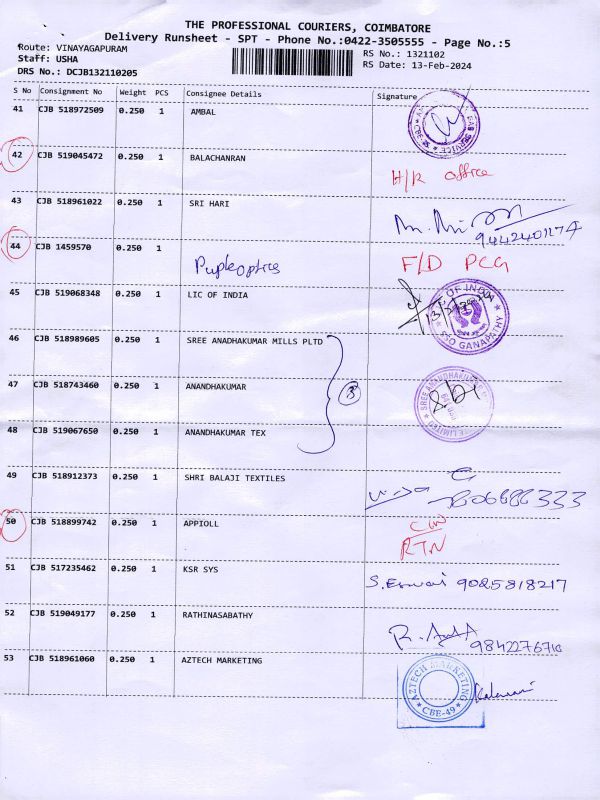 THE PROFESSIONAL COURIERS, COIMBATORE
Delivery Runsheet - SPT - Phone No.:0422-3505555 - Page No.:5
Route: VINAYAGAPURAM
RS No.: 1321102
Staff: USHA
RS Date: 13-Feb-2024
DRS No.: DCJB132110205
S No Consignment No Weight PCS Consignee Details Signature
41 CJB 518972509 0.250 1 AMBAL
42 CJB 519045472 0.250 1 BALACHANRAN
H/R office
43 CJB 518961022 0.250 1 SRI HARI
44 CJB 1459570 0.250 1
F/D PCG
45 CJB 519068348 0.250 1 LIC OF INDIA
OF INDIA
SSO GANAPATHY
46 CJB 518989605 0.250 1 SREE ANADHAKUMAR MILLS PLTD
3
47 CJB 518743460 0.250 1 ANANDHAKUMAR
48 CJB 519067650 0.250 1 ANANDHAKUMAR TEX
49 CJB 518912373 0.250 1 SHRI BALAJI TEXTILES
50 CJB 518899742 0.250 1 APPIOLL
RTN
51 CJB 517235462 0.250 1 KSR SYS
9025818217
52 CJB 519049177 0.250 1 RATHINASABATHY
53 CJB 518961060 0.250 1 AZTECH MARKETING
AZTECH MARKETING
CBE-49